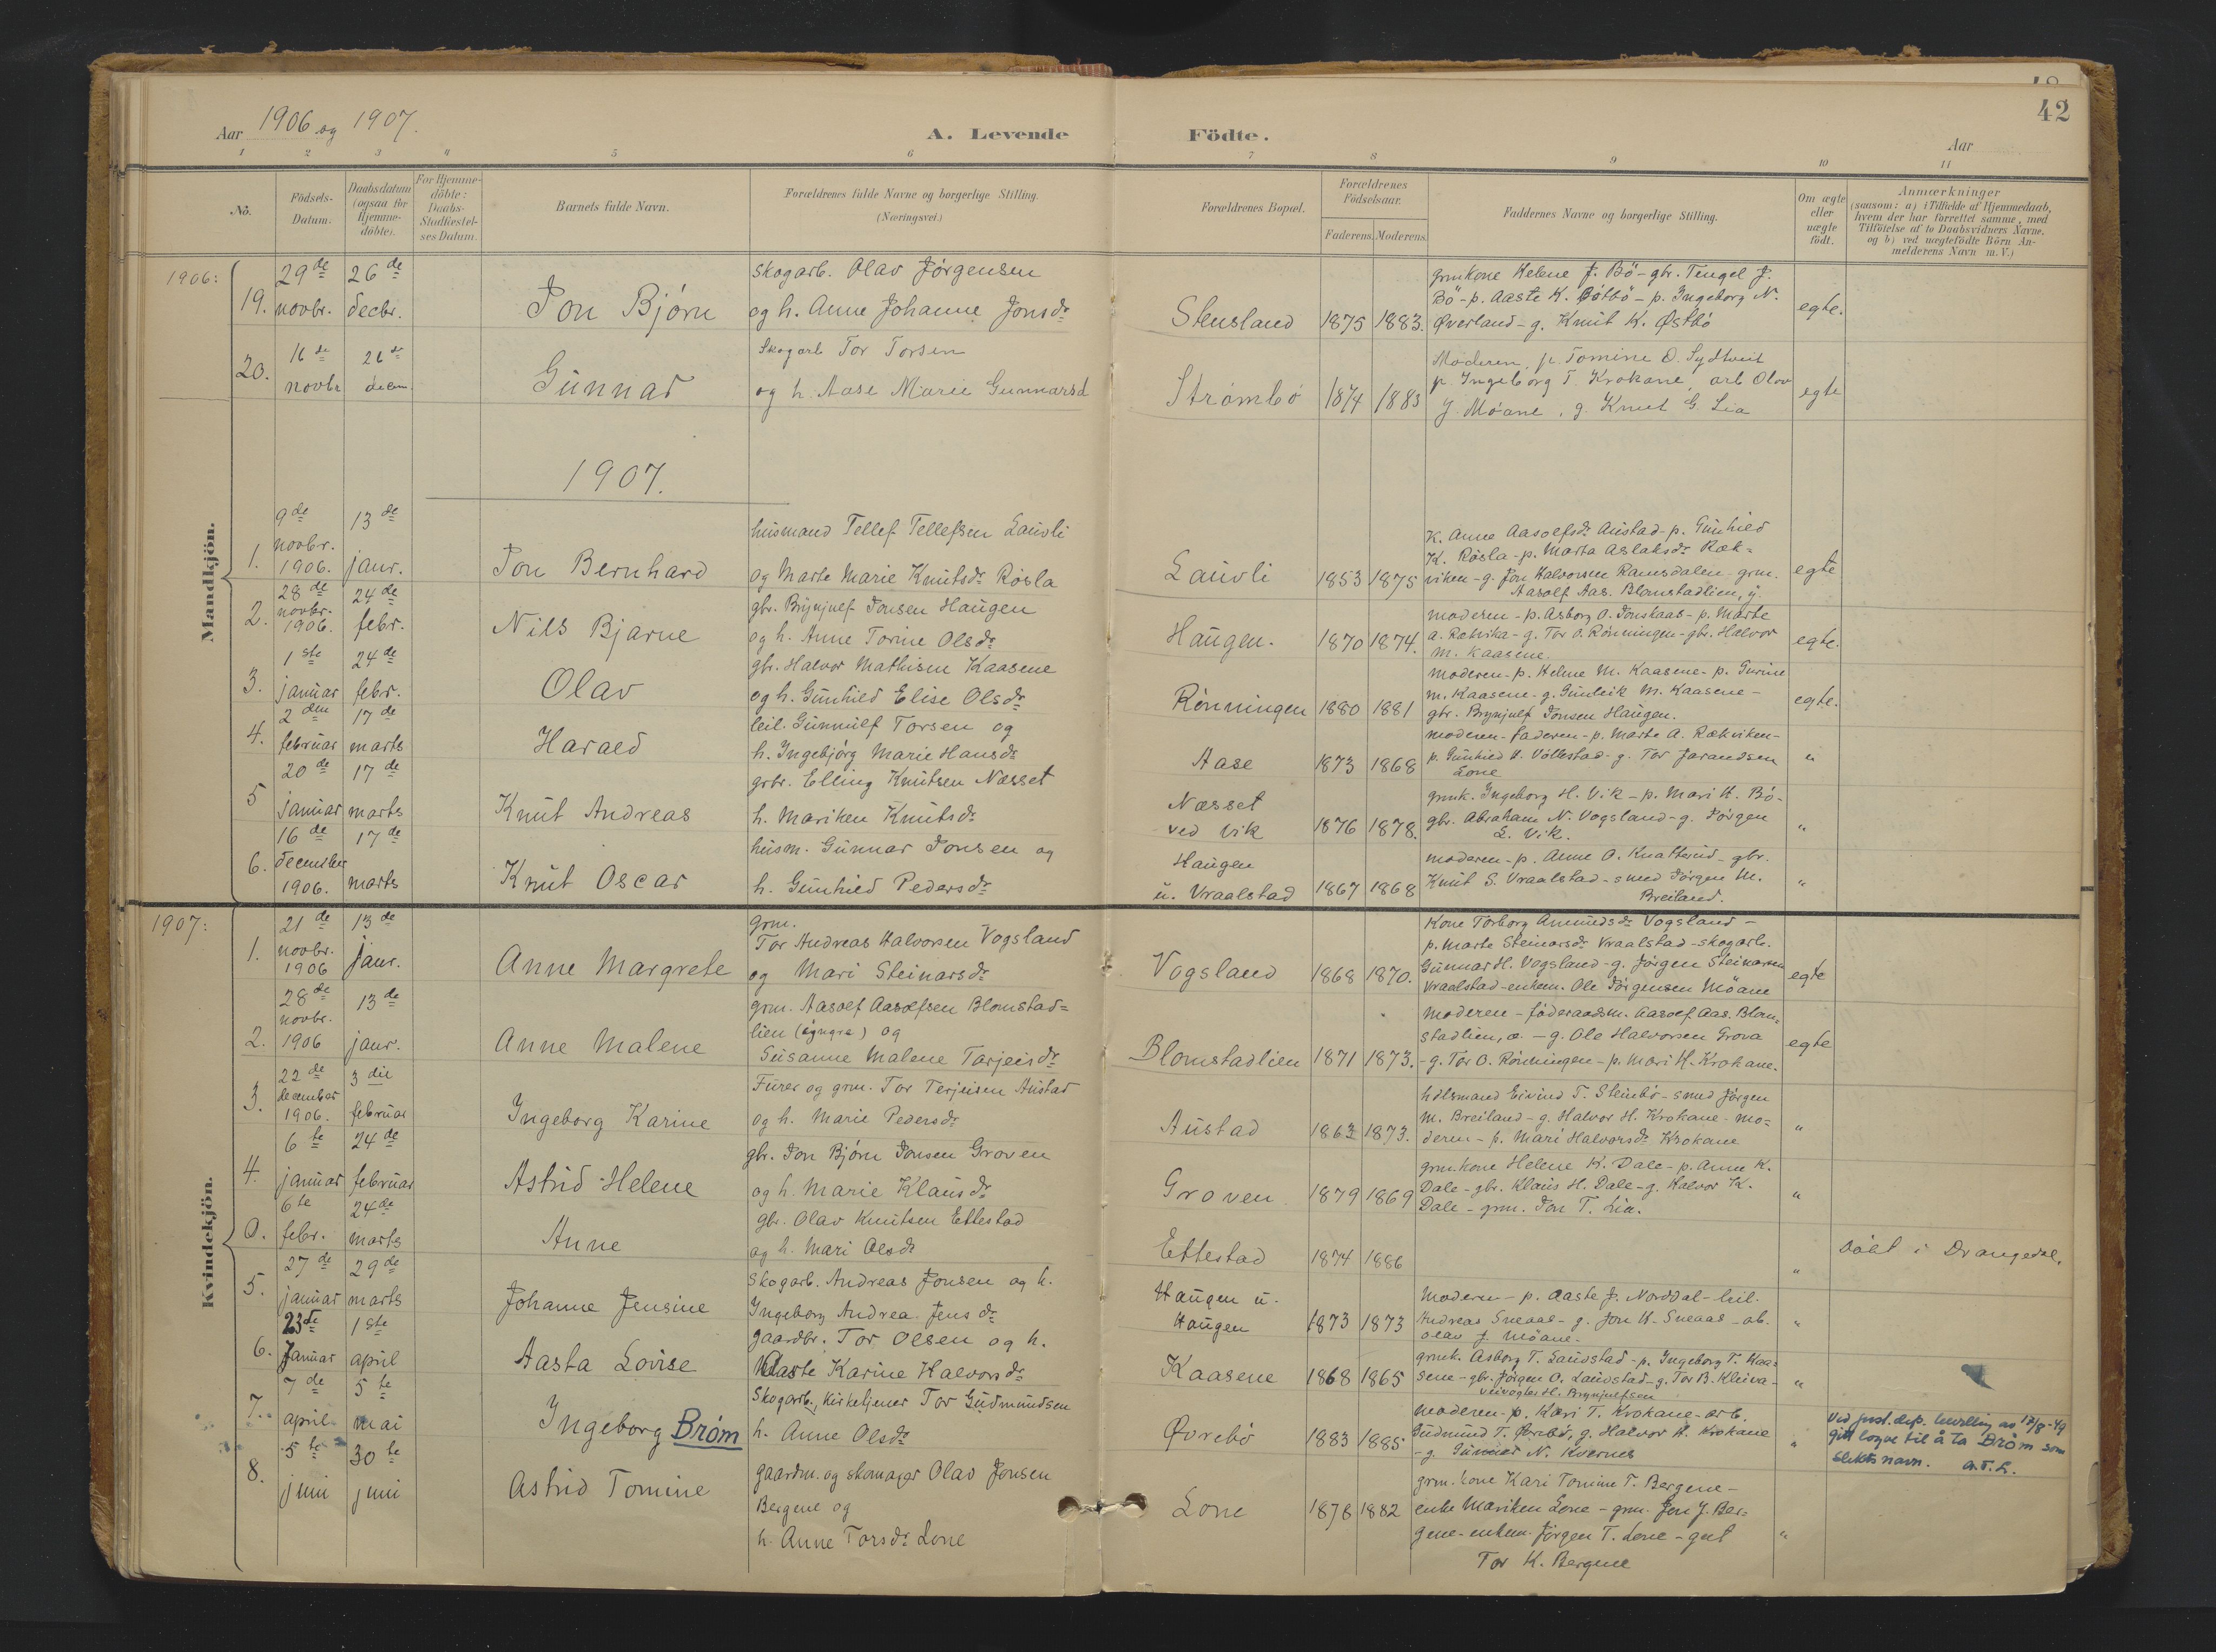 42
Aar 1906 og 1907.
A. Levende Födte.
Aar
1 2 3 4 5 6 7 8 9 10 11
No.
Födsels-
Datum.
Daabsdatum
(ogsaa for
Hjemme-
döbte).
For Hjemme-
döbte:
Daabs-
Stadfæstel-
ses Datum.
Barnets fulde Navn.
Forældrenes fulde Navne og borgerlige Stilling.
(Næringsvei.)
Forældrenes Bopæl.
Forældrenes
Födselsaar.
Faderens. Moderens.
Faddernes Navne og borgerlige Stilling.
Om ægte
eller
uægte
födt.
Anmærkninger
(saasom: a) i Tilfælde af Hjemmedaab,
hvem der har forrettet samme, med
Tilföielse af to Daabsvidners Navne.
og b) ved uægtefödte Börn An-
melderens Navn m. V.)
Mandkjön.
1906:
19.
29de
novbr.
26de
decbr.
Jon Bjørn
skogarb. Olav Jörgensen
og h. Anne Johanne Jonsdr
Stensland
1875 1883.
grmkone Helene J. Bö - gbr. Tengel J.
Bö - p. Aaste K. Östbö - p. Ingeborg N.
Øverland - g. Knut K. Østbö
egte.
20.
16de
novbr
26de
decm.
Gunnar
Skogarb Tor Torsen
og h. Aase Marie Gunnarsd
Strømbö
1874 1883
Moderen, p. Tomine O. Sydtveit
p. Ingeborg T. Krokane, arb Olav
J. Möane, g. Knut G. Lia
egte
1907.
1.
9de
novbr.
1906.
13de
janr.
Jon Bernhard
husmand Tellef Tellefsen Lauvli
og Marte Marie Knutsdr Røsla
Lauvli
1853 1875
K. Anne Aasolfsdr Austad - p. Gunhild
K. Røsla - p. Marta Aslaksdr Ræk=
viken - g. Jon Halvorsen Ramsdalen - grm.
Aasolf Aas. Blomstadlien, y.
egte
2.
28de
novbr.
1906.
24de
febr.
Nils Bjarne
gbr. Brynjulf Jonsen Haugen
og h. Anne Torine Olsdr
Haugen.
1870 1874.
moderen - p. Asborg O. Jonskaas - p. Marte
A. Rækvika - g. Tor O. Rønningen - gbr. Halvor
M. Kaasene.
egte.
3.
1ste
januar
24de
febr.
Olav
gbr. Halvor Mathisen Kaasene
og h. Gunhild Elise Olsdr
Rønningen
1880 1881
moderen - p. Helene M. Kaasene - p. Gurine
M. Kaasene - g. Gunleik M. Kaasene -
gbr. Brynjulf Jonsen Haugen.
egte.
4.
2den
februar
17de
marts
Harald
leil. Gunnulf Torsen og
h. Ingebjørg Marie Hansdr
Aase
1873 1868
moderen - faderen - p. Marte A. Rækviken -
p. Gunhild H. Völlestad - g. Tor Jarandsen
Lone
"
5
20de
januar
17de
marts
Knut Andreas
grbr. Elling Knutsen Næsset
h. Mariken Knutsdr
Næsset
ved Vik
1876 1878.
grmk. Ingeborg H. Vik - p. Mari H. Bö -
gbr. Abraham N. Vogsland - g. Jörgen
E. Vik.
"
6.
16de
december
1906.
17de
marts
Knut Oscar
husm. Gunnar Jonsen og
h. Gunhild Pedersdr
Haugen
u. Vraalstad
1867 1868
moderen - p. Anne O. Knatterud - gbr.
Knut S. Vraalstad - smed Jörgen M.
Breiland.
"
Kvindekjön.
1907:
1.
21de
novbr.
1906
13de
janr.
Anne Margrete
grm.
Tor Andreas Halvorsen Vogsland
og Mari Steinarsdr
Vogsland
1868 1870.
Kone Torborg Anundsdr Vogsland -
p. Marte Steinarsdr Vraalstad - skogarb.
Gunnar H. Vogsland - g. Jörgen Steinarsen
Vraalstad - enkem. Ole Jörgensen Möane
egte
2.
28de
novbr.
1906
13de
janr.
Anne Malene
grm. Aasolf Aasolfsen Blomstad=
lien (yngre) og
Susanne Malene Tarjeisdr
Blomstadlien
1871 1873.
moderen - föderaadsm. Aasolf Aas. Blom=
stadlien, æ. - g. Ole Halvorsen Grova
- g. Tor O. Rönningen - p. Mari H. Krokane.
egte
3.
22de
december
1906.
3die
februar
Ingeborg Karine
Furer og grm. Tor Terjeisen Austad
og h. Marie Pedersdr
Austad
1863 1873.
holsmand Eivind T. Steinbö - smed Jörgen
M. Breiland - g. Halvor H. Krokane - mo=
deren - p. Mari Halvorsdr Krokane
"
4.
6te
januar
24de
februar
Astrid Helene
gbr. Jon Bjørn Jonsen Groven
og h. Marie Klausdr
Groven
1879 1869
grmkone Helene K. Dale - p. Anne K.
Dale - gbr. Klaus H. Dale - g. Halvor K.
Dale - grm. Jon T. Lia.
"
0.
6te
febr.
24de
marts
Anne
gbr. Olav Knutsen Ettestad
og h. Mari Olsdr
Ettestad
1874 1886
"
Döbt i Drangedal.
5.
27de
januar
29de
marts
Johanne Jensine
Skogarb. Andreas Jonsen og h.
Ingeborg Andrea Jensdr
Haugen u.
Haugen
1873 1873
Moderen - p. Aaste J. Norddal - leil.
Andreas Sneaas - g. Jon K. Sneaas - ab.
Olav J. Möane -
"
6.
23de
Januar
1ste
april
Aasta Lovise
gaardbr. Tor Olsen og h.
Aaste Karine Halvorsdr
Kaasene
1868 1865
grmk. Asborg T. Landstad - p. Ingeborg T. Kaa=
sene - gbr. Jörgen O. Landstad - g. Tor B. Kleiva -
veivogter H. Brynjulfsen
"
7.
7de
april
5te
mai
Ingeborg Brøm
Skogarb., Kirketjener Tor Gudmundsen
h. Anne Olsdr
Øvrebö
1883 1885
moderen - p. Kari T. Krokane - arb.
Gudmund T. Øvrebö, g. Halvor H. Krokane
- g. Gunnar N. Kvernes
"
Ved just.dep. bevilling av 17/8-49
gitt lov til å ta Brøm som
slektsnavn. A.T.L.
8.
5te
juni
30te
juni
Astrid Tomine
gaardm. og skomager Olav Jonsen
Bergene og
h. Anne Torsdr Lone
Lone
1878 1882
grm.kone Kari Tomine T. Bergene -
enke Mariken Lone - grm. Jon J. Ber=
gene - enkem. Jörgen T. Lone - gut
Tor K. Bergene
"